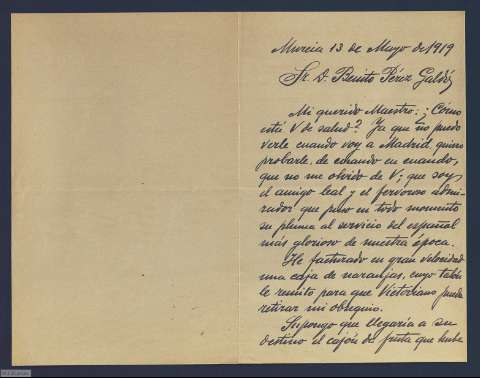 Murcia 13 de Mayo de 1919
Sr. D. Benito Pérez Galdós
Mi querido Maestro: ¿Cómo
está V de salud? Ya que no puedo
verle cuando voy a Madrid, quiero
probarle, de cuando en cuando,
que no me olvido de V; que soy
el amigo leal y el fervoroso admi-
rador que puso en todo momento
su pluma al servicio del español
más glorioso de nuestra época.
He facturado en gran velocidad
una caja de naranjas, cuyo talón
le remito para que Victoriano pueda
retirar mi obsequio.
Supongo que llegaría a su
destino el cajón de fruta que hube